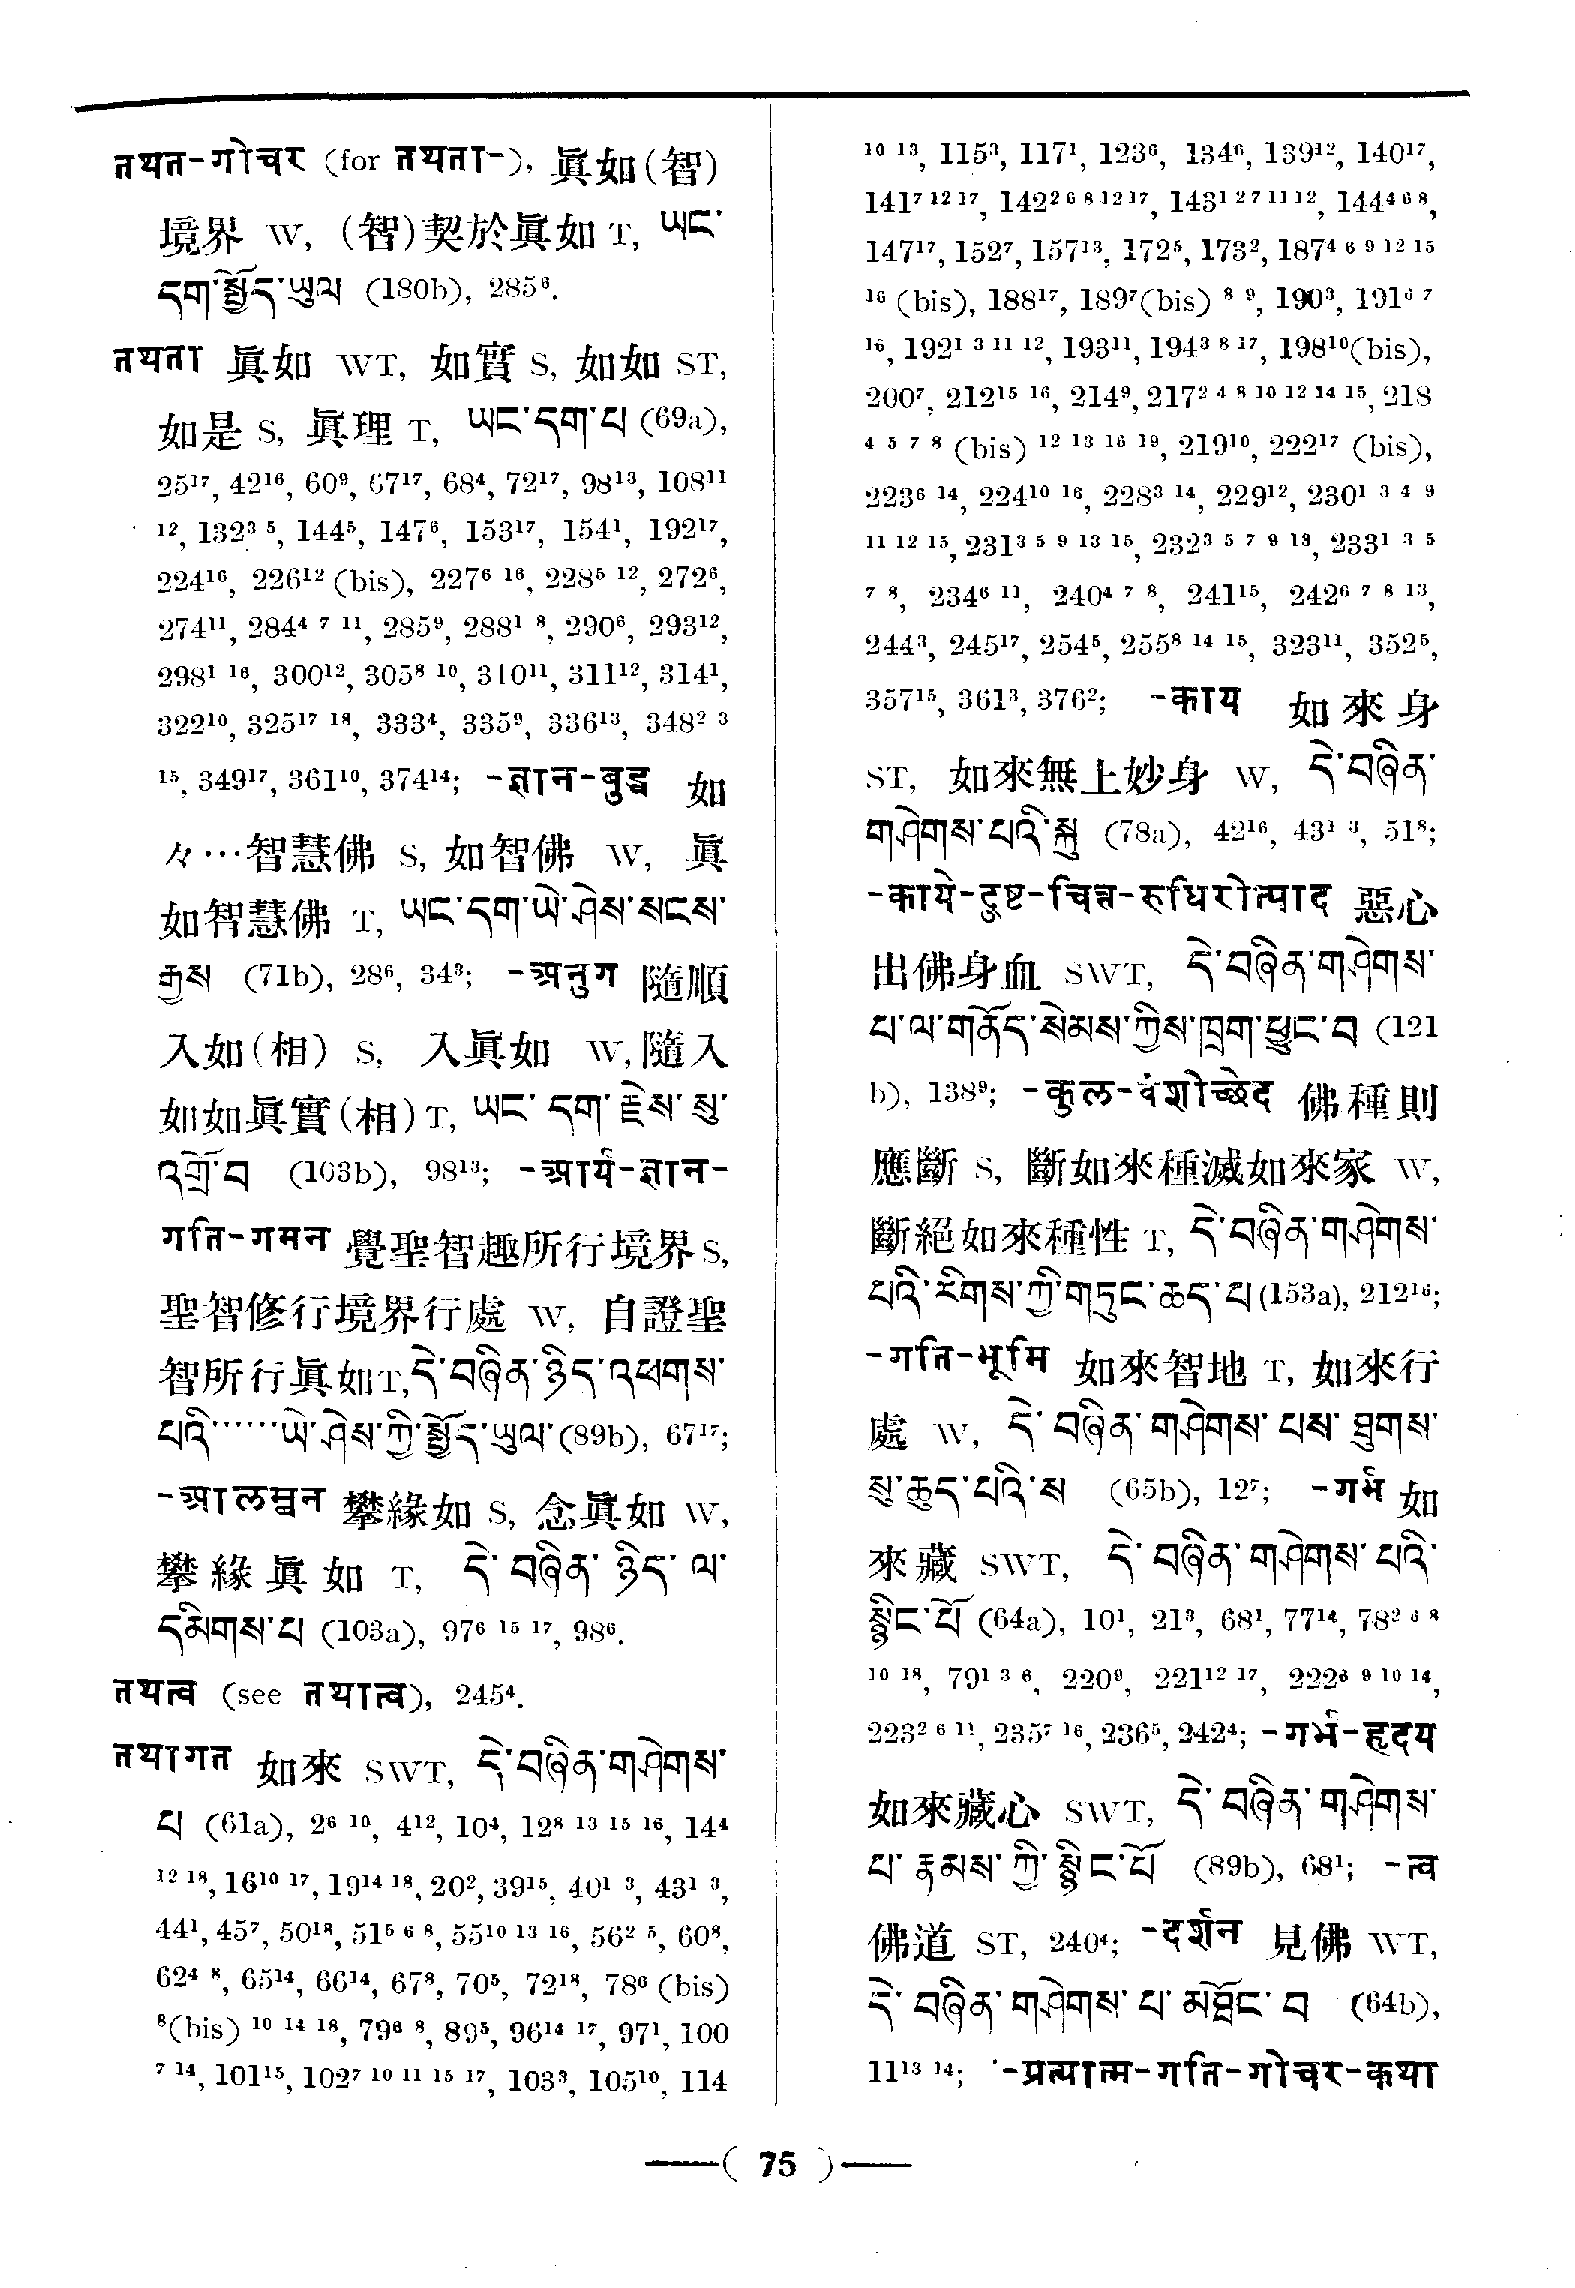 तथत-गोचर (for तथता-), 眞如(智)
境界 W, (智)契於眞如 T, ཡང་
དག་སྤྱོད་ཡུལ (180b), 285⁶.
तथता 眞如 WT, 如實 S, 如如 ST,
如是 S, 眞理 T, ཡང་དག་པ (69a),
25¹⁷, 42¹⁶, 60⁹, 67¹⁷, 68⁴, 72¹⁷, 98¹³, 108¹¹
¹², 132³ ⁵, 144⁵, 147⁶, 153¹⁷, 154¹, 192¹⁷,
224¹⁶, 226¹² (bis), 227⁶ ¹⁶, 228⁵ ¹², 272⁶,
274¹¹, 284⁴ ⁷ ¹¹, 285⁹, 288¹ ⁸, 290⁶, 293¹²,
298¹ ¹⁶, 300¹², 305⁸ ¹⁰, 310¹¹, 311¹², 314¹,
322¹⁰, 325¹⁷ ¹⁸, 333⁴, 335⁹, 336¹³, 348² ³
¹⁵, 349¹⁷, 361¹⁰, 374¹⁴; -ज्ञान-बुद्ध 如
々…智慧佛 S, 如智佛 W, 眞
如智慧佛 T, ཡང་དག་ཡེ་ཤེས་སངས་
རྒྱས (71b), 28⁶, 34³; -अनुग 隨順
入如(相) S, 入眞如 W, 隨入
如如眞實(相) T, ཡང་དག་རྗེས་སུ་
འགྲོ་བ (103b), 98¹³; -आर्य-ज्ञान-
गति-गमन 覺聖智趣所行境界 S,
聖智修行境界行處 W, 自證聖
智所行眞如 T, དེ་བཞིན་ཉིད་འཕགས་
པའི······ཡེ་ཤེས་ཀྱི་སྤྱོད་ཡུལ་(89b), 67¹⁷;
-आलम्बन 攀緣如 S, 念眞如 W,
攀緣眞如 T, དེ་བཞིན་ཉིད་ལ་
དམིགས་པ (103a), 97⁶ ¹⁵ ¹⁷, 98⁶.
तथत्व (see तथात्व), 245⁴.
तथागत 如來 SWT, དེ་བཞིན་གཤེགས་
པ (61a), 2⁶ ¹⁰, 4¹², 10⁴, 12⁸ ¹³ ¹⁵ ¹⁶, 14⁴
¹² ¹⁸, 16¹⁰ ¹⁷, 19¹⁴ ¹⁸, 20², 39¹⁵, 40¹ ³, 43¹ ³,
44¹, 45⁷, 50¹⁸, 51⁵ ⁶ ⁸, 55¹⁰ ¹³ ¹⁶, 56² ⁵, 60⁸,
62⁴ ⁸, 65¹⁴, 66¹⁴, 67⁸, 70⁵, 72¹⁸, 78⁶ (bis)
⁸(bis) ¹⁰ ¹⁴ ¹⁸, 79⁶ ⁸, 89⁵, 96¹⁴ ¹⁷, 97¹, 100
⁷ ¹⁴, 101¹⁵, 102⁷ ¹⁰ ¹¹ ¹⁵ ¹⁷, 103³, 105¹⁰, 114
¹⁰ ¹³, 115³, 117¹, 123⁶, 134⁶, 139¹², 140¹⁷,
141⁷ ¹² ¹⁷, 142² ⁶ ⁸ ¹² ¹⁷, 143¹ ² ⁷ ¹¹ ¹², 144⁴ ⁶ ⁸,
147¹⁷, 152⁷, 157¹³, 172⁵, 173², 187⁴ ⁶ ⁹ ¹² ¹⁵
¹⁶ (bis), 188¹⁷, 189⁷(bis) ⁸ ⁹, 190³, 191⁶ ⁷
¹⁶, 192¹ ³ ¹¹ ¹², 193¹¹, 194³ ⁸ ¹⁷, 198¹⁰(bis),
200⁷, 212¹⁵ ¹⁶, 214⁹, 217² ⁴ ⁸ ¹⁰ ¹² ¹⁴ ¹⁵, 218
⁴ ⁵ ⁷ ⁸ (bis) ¹² ¹³ ¹⁶ ¹⁹, 219¹⁰, 222¹⁷ (bis),
223⁶ ¹⁴, 224¹⁰ ¹⁶, 228³ ¹⁴, 229¹², 230¹ ³ ⁴ ⁹
¹¹ ¹² ¹⁵, 231³ ⁵ ⁹ ¹³ ¹⁵, 232³ ⁵ ⁷ ⁹ ¹³, 233¹ ³ ⁵
⁷ ⁸, 234⁶ ¹¹, 240⁴ ⁷ ⁸, 241¹⁵, 242⁶ ⁷ ⁸ ¹³,
244³, 245¹⁷, 254⁵, 255⁸ ¹⁴ ¹⁵, 323¹¹, 352⁵,
357¹⁵, 361³, 376²; -काय 如來身
ST, 如來無上妙身 W, དེ་བཞིན་
གཤེགས་པའི་སྐུ (78a), 42¹⁶, 43¹ ³, 51⁸;
-काये-दुष्ट-चित्त-रुधिरोत्पाद 惡心
出佛身血 SWT, དེ་བཞིན་གཤེགས་
པ་ལ་གནོད་སེམས་ཀྱིས་ཁྲག་ཕྱུང་བ (121
b), 138⁹; -कुल-वंशोच्छेद 佛種則
應斷 S, 斷如來種滅如來家 W,
斷絕如來種性 T, དེ་བཞིན་གཤེགས་
པའི་རིགས་ཀྱི་གདུང་ཆད་པ (153a), 212¹⁶;
-गति-भूमि 如來智地 T, 如來行
處 W, དེ་བཞིན་གཤེགས་པས་ཐུགས་
སུ་ཆུད་པའི་ས (65b), 12⁷; -गर्भ 如
來藏 SWT, དེ་བཞིན་གཤེགས་པའི་
སྙིང་པོ (64a), 10¹, 21³, 68¹, 77¹⁴, 78² ⁶ ⁸
¹⁰ ¹⁸, 79¹ ³ ⁶, 220⁹, 221¹² ¹⁷, 222⁶ ⁹ ¹⁰ ¹⁴,
223² ⁶ ¹¹, 235⁷ ¹⁶, 236⁵, 242⁴; -गर्भ-हृदय
如來藏心 SWT, དེ་བཞིན་གཤེགས་
པ་རྣམས་ཀྱི་སྙིང་པོ (89b), 68¹; -त्व
佛道 ST, 240⁴; -दर्शन 見佛 WT,
དེ་བཞིན་གཤེགས་པ་མཐོང་བ (64b),
11¹³ ¹⁴; -प्रत्यात्म-गति-गोचर-कथा
—( 75 )—